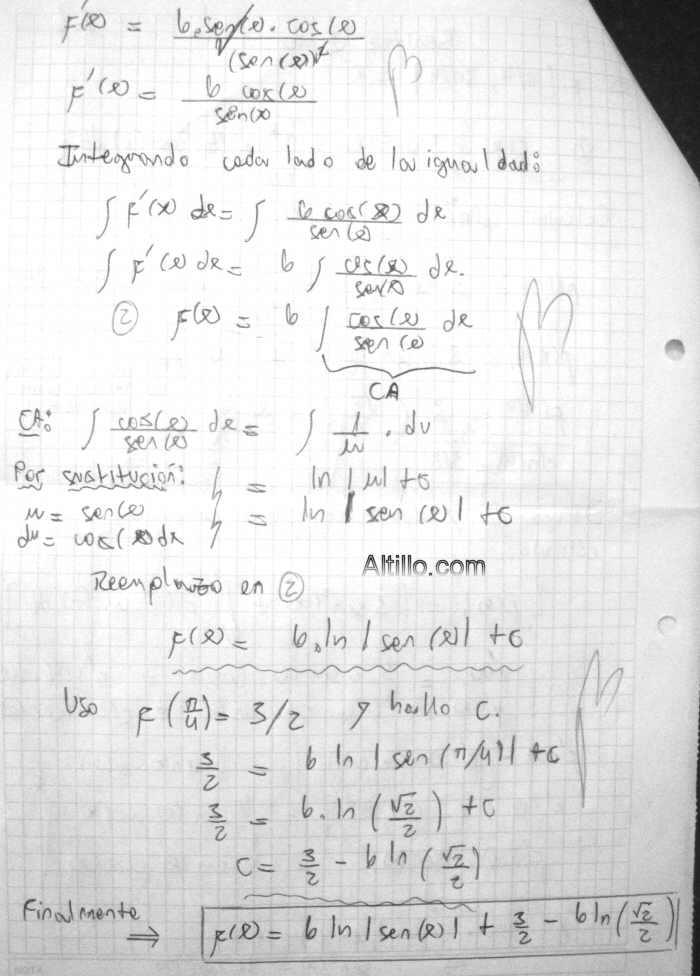 F'(x) = 6.sen(x).cos(x) / (sen(x))²
F'(x) = 6 cos(x) / sen(x)
Integrando cada lado de la igualdad:
∫ F'(x) dx = ∫ 6 cos(x) / sen(x) dx
∫ F'(x) dx = 6 ∫ cos(x) / sen(x) dx.
② F(x) = 6 ∫ cos(x) / sen(x) dx
CA
CA: ∫ cos(x) / sen(x) dx = ∫ 1/u . du
Por sustitución: = ln |u| + c
u = sen(x) = ln |sen(x)| + c
du = cos(x) dx
Altillo.com
Reemplazo en ②
F(x) = 6.ln |sen(x)| + c
Uso F(π/4) = 3/2 y hallo C.
3/2 = 6 ln |sen(π/4)| + c
3/2 = 6.ln (√2/2) + c
C = 3/2 - 6 ln (√2/2)
Finalmente ⇒ F(x) = 6 ln |sen(x)| + 3/2 - 6 ln (√2/2)